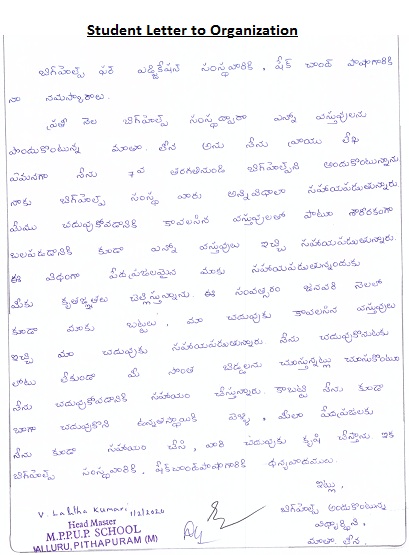 Student Letter to Organization
బిగ్‌హెల్ప్ ఫర్ ఎడ్యుకేషన్ సంస్థవారికి, షేక్ చాంద్ పాషాగారికి
నా నమస్కారాలు.
ప్రతీ నెల బిగ్‌హెల్ప్ సంస్థద్వారా ఎన్నో వస్తువులను
పొందుకొంటున్న మాతా. లీన అను నేను వ్రాయు లేఖ
ఏమనగా నేను 7వ తరగతినుండి బిగ్‌హెల్ప్‌ని అందుకొంటున్నాను
నాకు బిగ్‌హెల్ప్ సంస్థ వారు అన్నివిధాలా సహాయపడుతున్నారు.
మేము చదువుకోవడానికి కావలసిన వస్తువులతో పాటూ శారీరకంగా
బలపడడానికి కూడా ఎన్నో వస్తువులు ఇచ్చి సహాయపడుతున్నారు.
ఈ విధంగా పేదప్రజలమైన మాకు సహాయపడుతున్నందుకు
మీకు కృతజ్ఞతలు చెల్లిస్తున్నాను. ఈ సంవత్సరం జనవరి నెలలో
కూడా మాకు బట్టలు, మా చదువుకు కావలసిన వస్తువులు
ఇచ్చి మా చదువుకు సహాయపడుతున్నారు నేను చదువుకొనుటకు
లోటు లేకుండా మీ సొంత బిడ్డలను చూస్తున్నట్లు చూసుకొంటూ
నేను చదువుకోవడానికి సహాయం చేస్తున్నారు. కాబట్టి నేను కూడా
బాగా చదువుకొని ఉన్నతస్థాయికి వెళ్ళి, మీలా పేదప్రజలకు
నేను కూడా సహాయం చేసి, వారి చదువుకు కృషి చేస్తాను. ఇక
బిగ్‌హెల్ప్ సంస్థవారికి, షేక్‌చాంద్‌పాషాగారికి ధన్యవాదములు.
ఇట్లు,
బిగ్‌హెల్ప్ అందుకొంటున్న
విద్యార్థిని,
మాతా. లీన.
V. Lalitha Kumari 1/2/2020
Head Master
M.P.P.U.P. SCHOOL
MALLURU, PITHAPURAM (M)